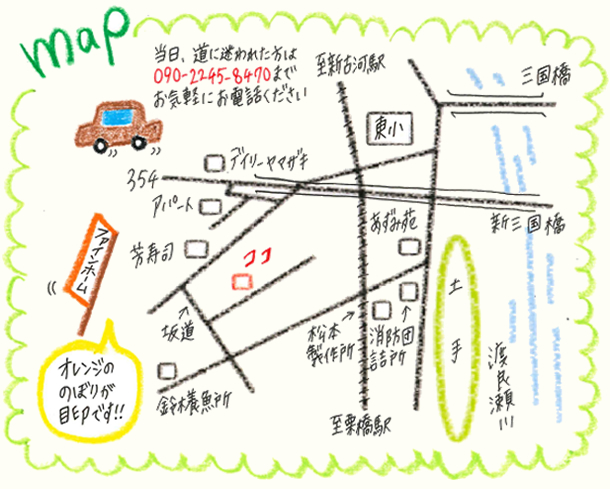 map
当日、道に迷われた方は
090-2245-8470まで
お気軽にお電話ください
至新古河駅
三国橋
東小
デイリーヤマザキ
354
アパート
新三国橋
あずみ苑
芳寿司
ココ
ファインホーム
土手
坂道
松本
製作所
消防団
詰所
渡良瀬川
オレンジの
のぼりが
目印です!!
鈴木養魚所
至栗橋駅